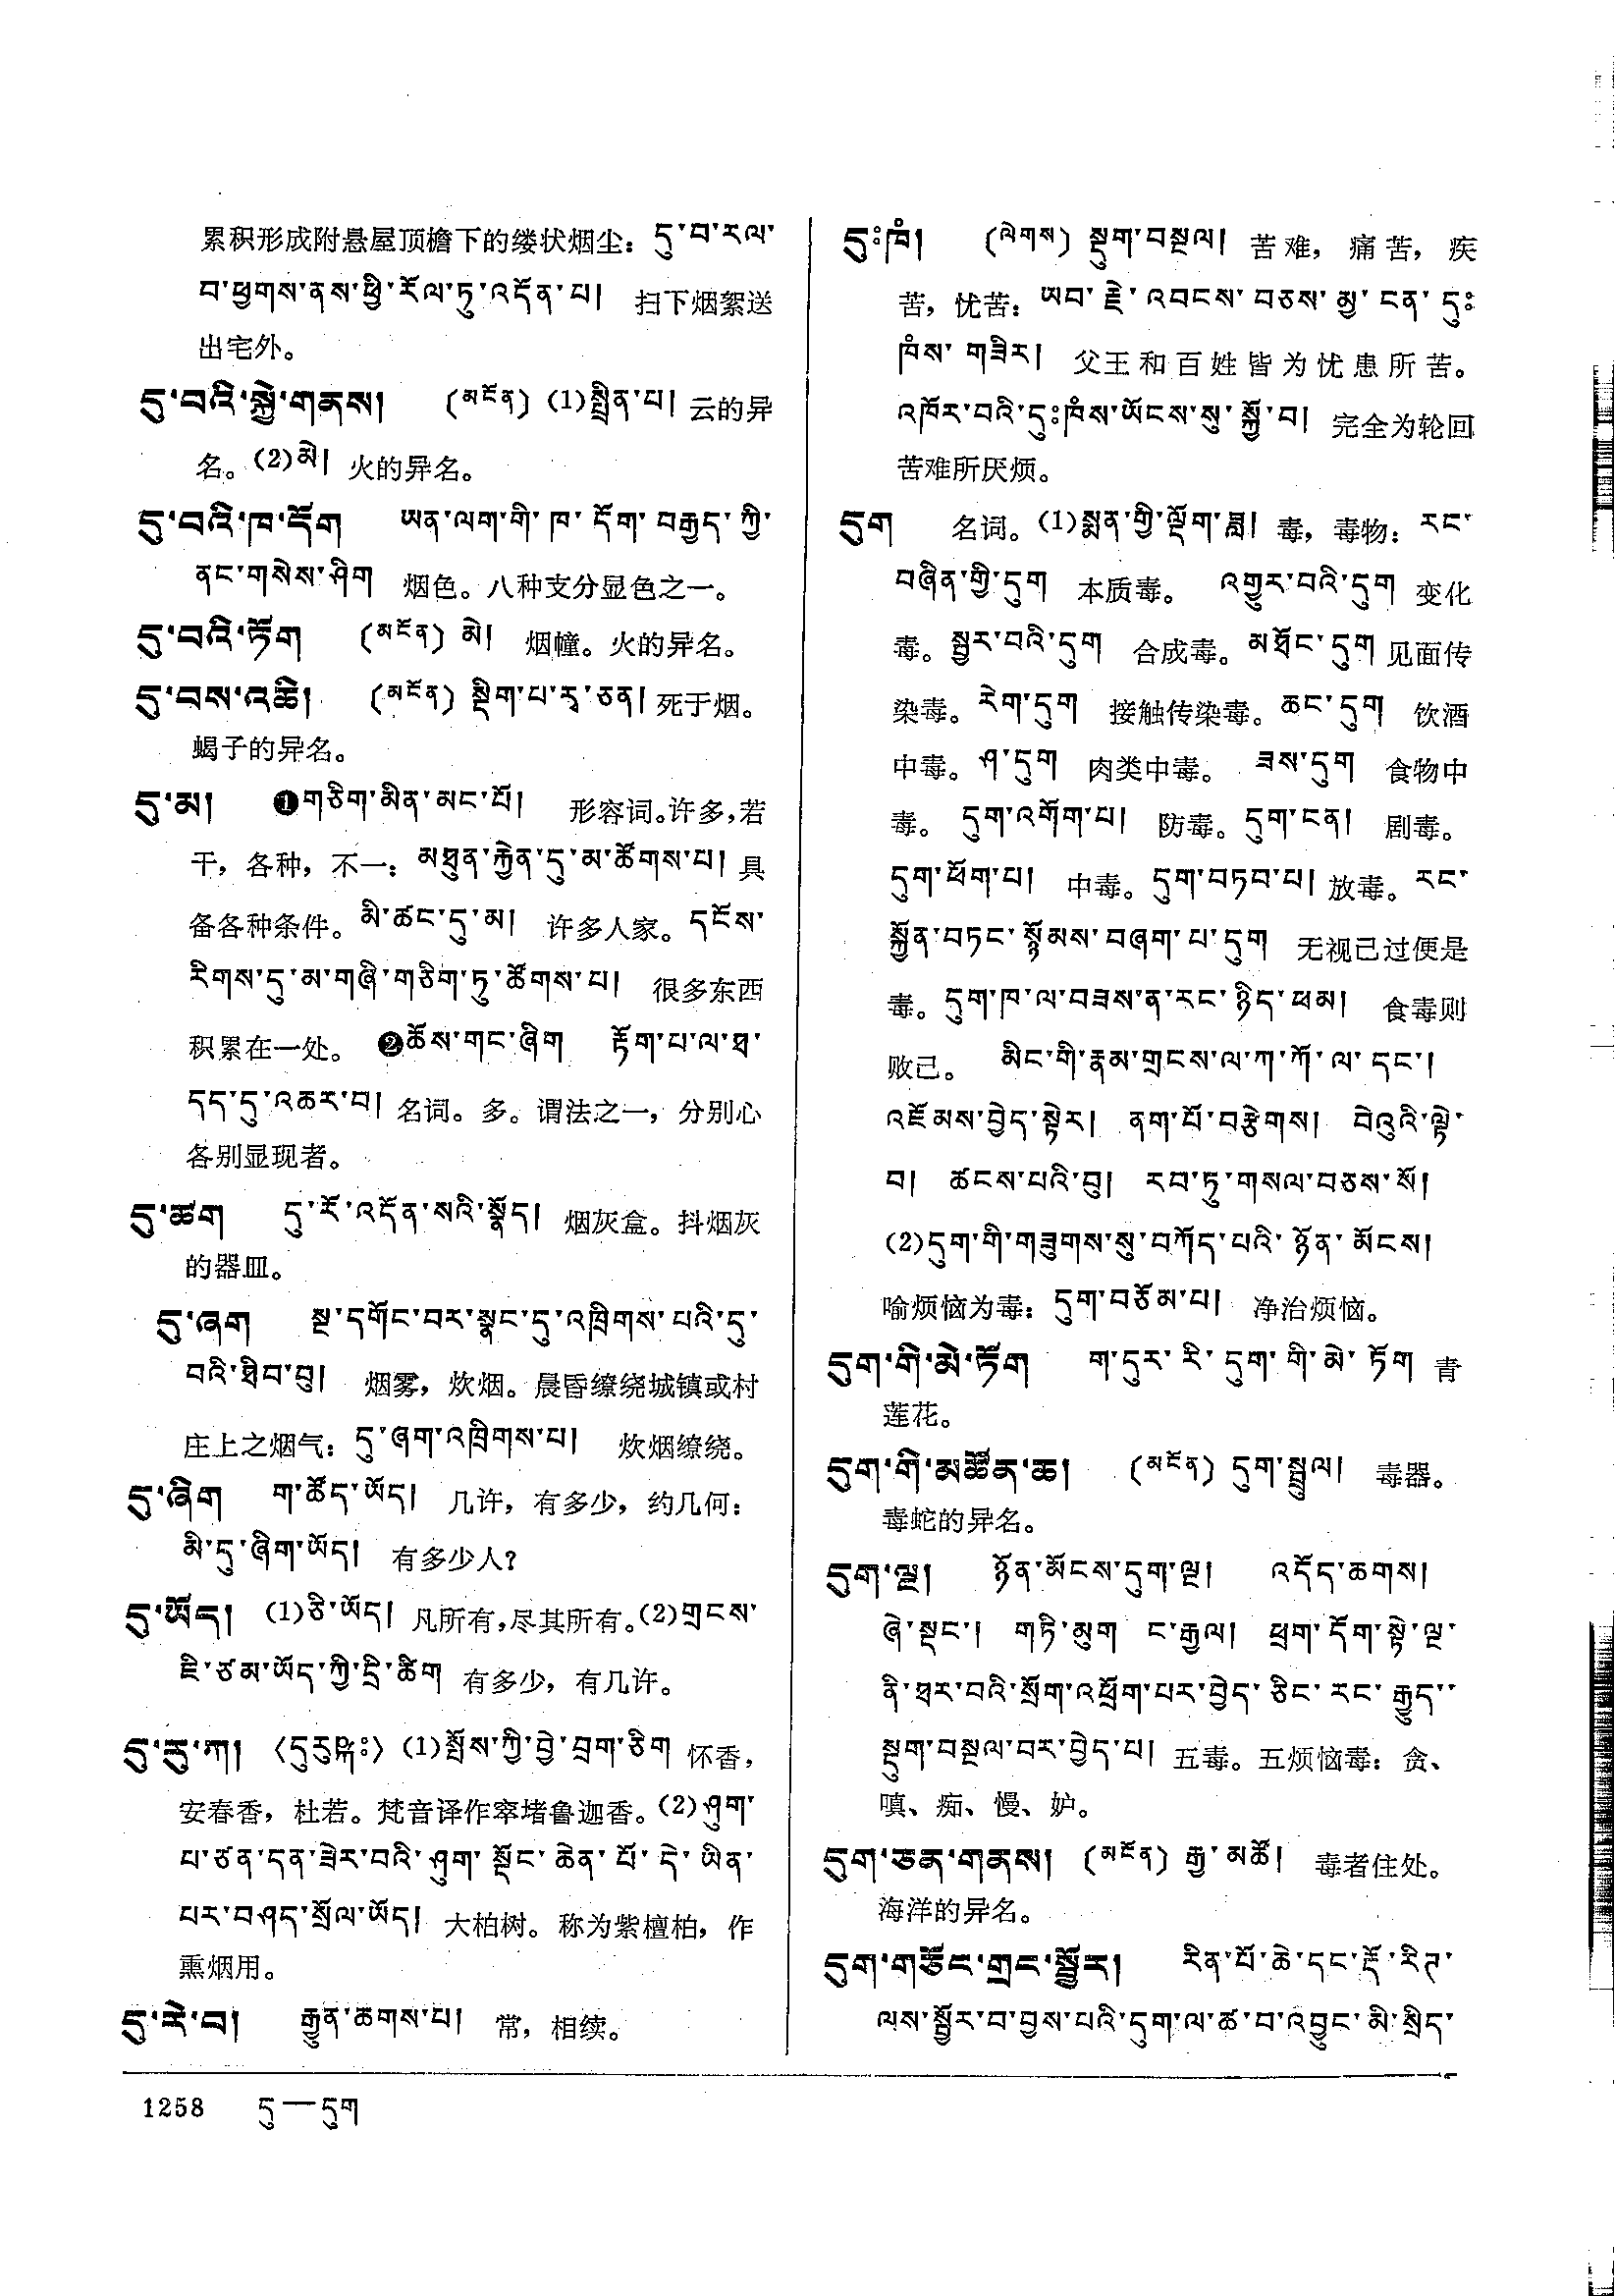 累积形成附悬屋顶檐下的缕状烟尘：དུ་བ་རལ་
བ་ཕྱགས་ནས་ཕྱི་རོལ་ཏུ་འདོན་པ། 扫下烟絮送
出宅外。
དུ་བའི་སྐྱེ་གནས། (མངོན) (1)སྤྲིན་པ། 云的异
名。(2)མེ། 火的异名。
དུ་བའི་ཁ་དོག ཡན་ལག་གི་ཁ་དོག་བརྒྱད་ཀྱི་
ནང་གསེས་ཤིག 烟色。八种支分显色之一。
དུ་བའི་ཏོག (མངོན) མེ། 烟幢。火的异名。
དུ་བས་འཆི། (མངོན) སྡིག་པ་རྭ་ཅན། 死于烟。
蝎子的异名。
དུ་མ། ❶གཅིག་མིན་མང་པོ། 形容词。许多,若
干，各种，不一：མཐུན་རྐྱེན་དུ་མ་ཚོགས་པ། 具
备各种条件。མི་ཚང་དུ་མ། 许多人家。དངོས་
རིགས་དུ་མ་གཞི་གཅིག་ཏུ་ཚོགས་པ། 很多东西
积累在一处。 ❷ཆོས་གང་ཞིག རྟོག་པ་ལ་ཐ་
དད་དུ་འཆར་བ། 名词。多。谓法之一，分别心
各别显现者。
དུ་ཚག དུ་རོ་འདོན་སའི་སྣོད། 烟灰盒。抖烟灰
的器皿。
དུ་ཞག སྔ་དགོང་བར་སྣང་དུ་འཁྲིགས་པའི་དུ་
བའི་ཐིབ་བུ། 烟雾，炊烟。晨昏缭绕城镇或村
庄上之烟气：དུ་ཞག་འཁྲིགས་པ། 炊烟缭绕。
དུ་ཞིག ག་ཚོད་ཡོད། 几许，有多少，约几何：
མི་དུ་ཞིག་ཡོད། 有多少人？
དུ་ཡོད། (1)ཅི་ཡོད། 凡所有,尽其所有。(2)གྲངས་
ཇི་ཙམ་ཡོད་ཀྱི་དྲི་ཚིག 有多少，有几许。
དུ་རུ་ཀ། 〈དུརུཥྐཿ〉 (1)སྤོས་ཀྱི་བྱེ་བྲག་ཅིག 怀香，
安春香，杜若。梵音译作窣堵鲁迦香。(2)ཤུག་
པ་ཙན་དན་ཟེར་བའི་ཤུག་སྡོང་ཆེན་པོ་དེ་ཡིན་
པར་བཤད་སྲོལ་ཡོད། 大柏树。称为紫檀柏，作
熏烟用。
དུ་རེ་བ། རྒྱུན་ཆགས་པ། 常，相续。
དུཿཁཾ། (ལེགས) སྡུག་བསྔལ། 苦难，痛苦，疾
苦，忧苦：ཡབ་རྗེ་འབངས་བཅས་མྱ་ངན་དུཿ
ཁཾས་གཟིར། 父王和百姓皆为忧患所苦。
འཁོར་བའི་དུཿཁཾས་ཡོངས་སུ་སྐྱོ་བ། 完全为轮回
苦难所厌烦。
དུག 名词。(1)སྨན་གྱི་ལྡོག་ཟླ། 毒，毒物：རང་
བཞིན་གྱི་དུག 本质毒。 འགྱུར་བའི་དུག 变化
毒。སྦྱར་བའི་དུག 合成毒。མཐོང་དུག 见面传
染毒。རེག་དུག 接触传染毒。ཆང་དུག 饮酒
中毒。ཤ་དུག 肉类中毒。 ཟས་དུག 食物中
毒。 དུག་འགོག་པ། 防毒。དུག་ངན། 剧毒。
དུག་ཕོག་པ། 中毒。དུག་བཏབ་པ། 放毒。རང་
སྐྱོན་བཏང་སྙོམས་བཞག་པ་དུག 无视己过便是
毒。དུག་ཁ་ལ་བཟས་ན་རང་ཉིད་ཕམ། 食毒则
败己。 མིང་གི་རྣམ་གྲངས་ལ་ཀ་ཀོ་ལ་དང་།
འཇོམས་བྱེད་སྟེར། ནག་པོ་བརྩེགས། བེའུའི་ལྟེ་
བ། ཚངས་པའི་བུ། རབ་ཏུ་གསལ་བཅས་སོ།
(2)དུག་གི་གཟུགས་སུ་བཀོད་པའི་ཉོན་མོངས།
喻烦恼为毒：དུག་བཅོམ་པ། 净治烦恼。
དུག་གི་མེ་ཏོག ག་དུར་རི་དུག་གི་མེ་ཏོག 青
莲花。
དུག་གི་མཚོན་ཆ། (མངོན) དུག་སྦྲུལ། 毒器。
毒蛇的异名。
དུག་ལྔ། ཉོན་མོངས་དུག་ལྔ། འདོད་ཆགས།
ཞེ་སྡང་། གཏི་མུག ང་རྒྱལ། ཕྲག་དོག་སྟེ་ལྔ་
ནི་ཐར་བའི་སྲོག་འཕྲོག་པར་བྱེད་ཅིང་རང་རྒྱུད་
སྡུག་བསྔལ་བར་བྱེད་པ། 五毒。五烦恼毒：贪、
嗔、痴、慢、妒。
དུག་ཅན་གནས། (མངོན) རྒྱ་མཚོ། 毒者住处。
海洋的异名。
དུག་གཙོང་གྲང་སྦྱོར། རིན་པོ་ཆེ་དང་རྡོ་རིཊ་
ལས་སྦྱོར་བ་བྱས་པའི་དུག་ལ་ཚ་བ་འབྱུང་མི་སྲིད་
1258 དུ—དུག